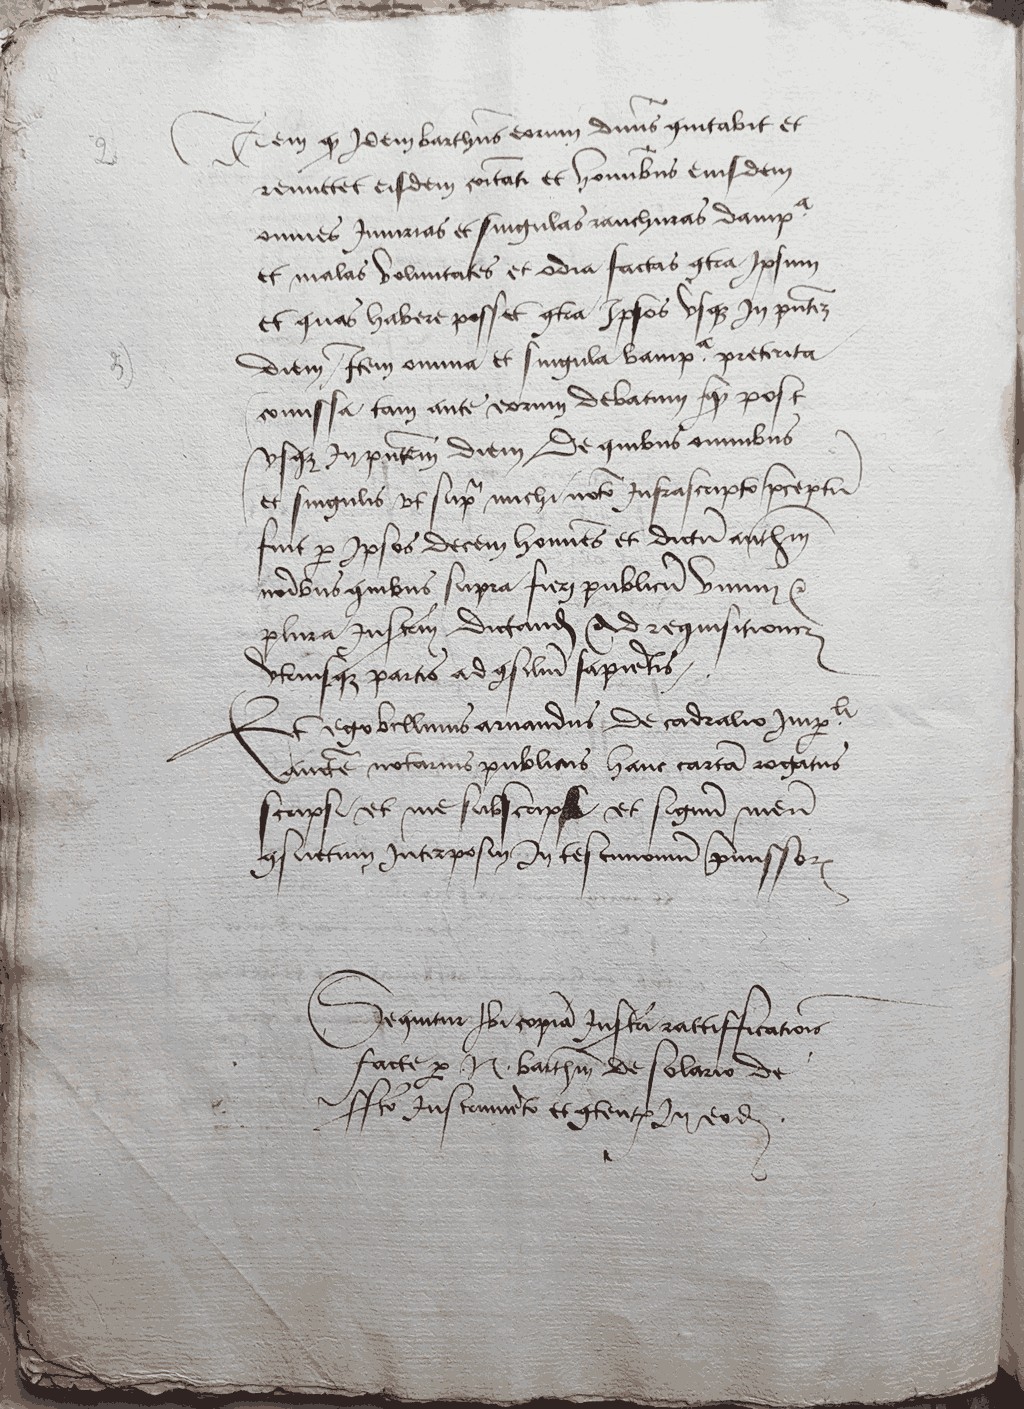 2)
Item q Idem barthus eorum dnus quitabit et
remittet eisdem coitati et hominibus eiusdem
omnes Iniurias et singulas ranchuras damp.a
et malas voluntates et odia factas gtra Ipsum
et quas habere posset gtra Ipsos vsq In pntez
3)
diem / Item omnia et singula bamp.a preterita
comissa tam ante eorum debatum q post
vsq In pntem diem / De quibus omnibus
et singulis vt supra michi noto Infrascripto pceptu
fuit p Ipsos decem homines et dictu
noibus quibus supra fieri publicu vnum
plura Instm dictand Ad requisitionez
vtriusq partis ad gsiliu sapietis /
Et ego bellinus arnandus De cadralio Imp.li
aucte notarius publicus hanc carta rogatus
scripsi et me subscripsi et signu meu
gsuetum Interposui In testimoniu pmissor
Sequitur Ibi copia Instri rattifficatiois
facte p N. barthm de solario de
Instrumeto et gtent In eod.